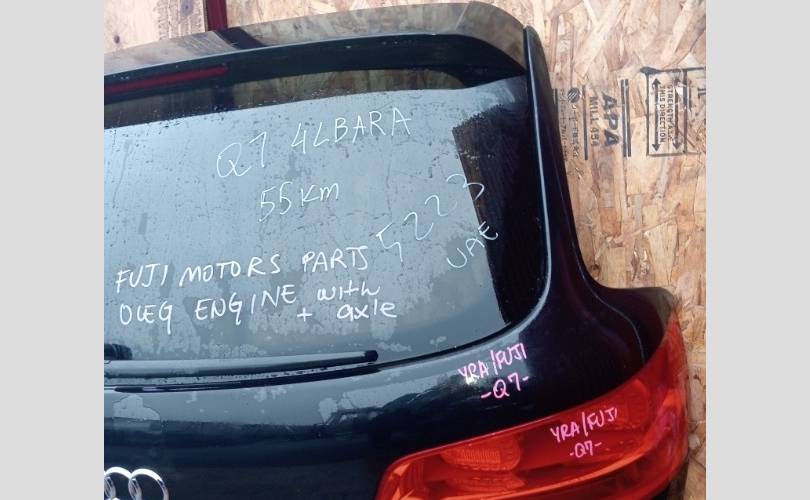 Q7 4LBARA
55Km
5223
UAE
FUJI MOTORS PARTS
OLEG ENGINE with
+ axle
YRA/FUJI
-Q7-
YRA/FUJI
-Q7-
APA
MILL 454
STRENGTH AXIS
THIS DIRECTION